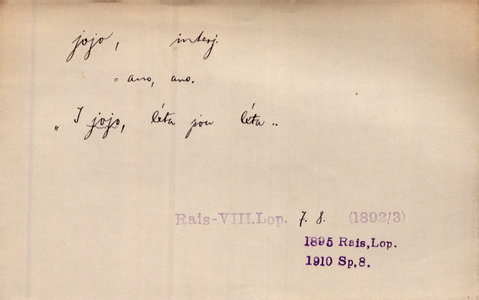 jojo, interj.
= ano, ano.
„I jojo, léta jsou léta..
Rais-VIII.Lop. 7. 8. (1892/3)
1895 Rais,Lop.
1910 Sp,8.